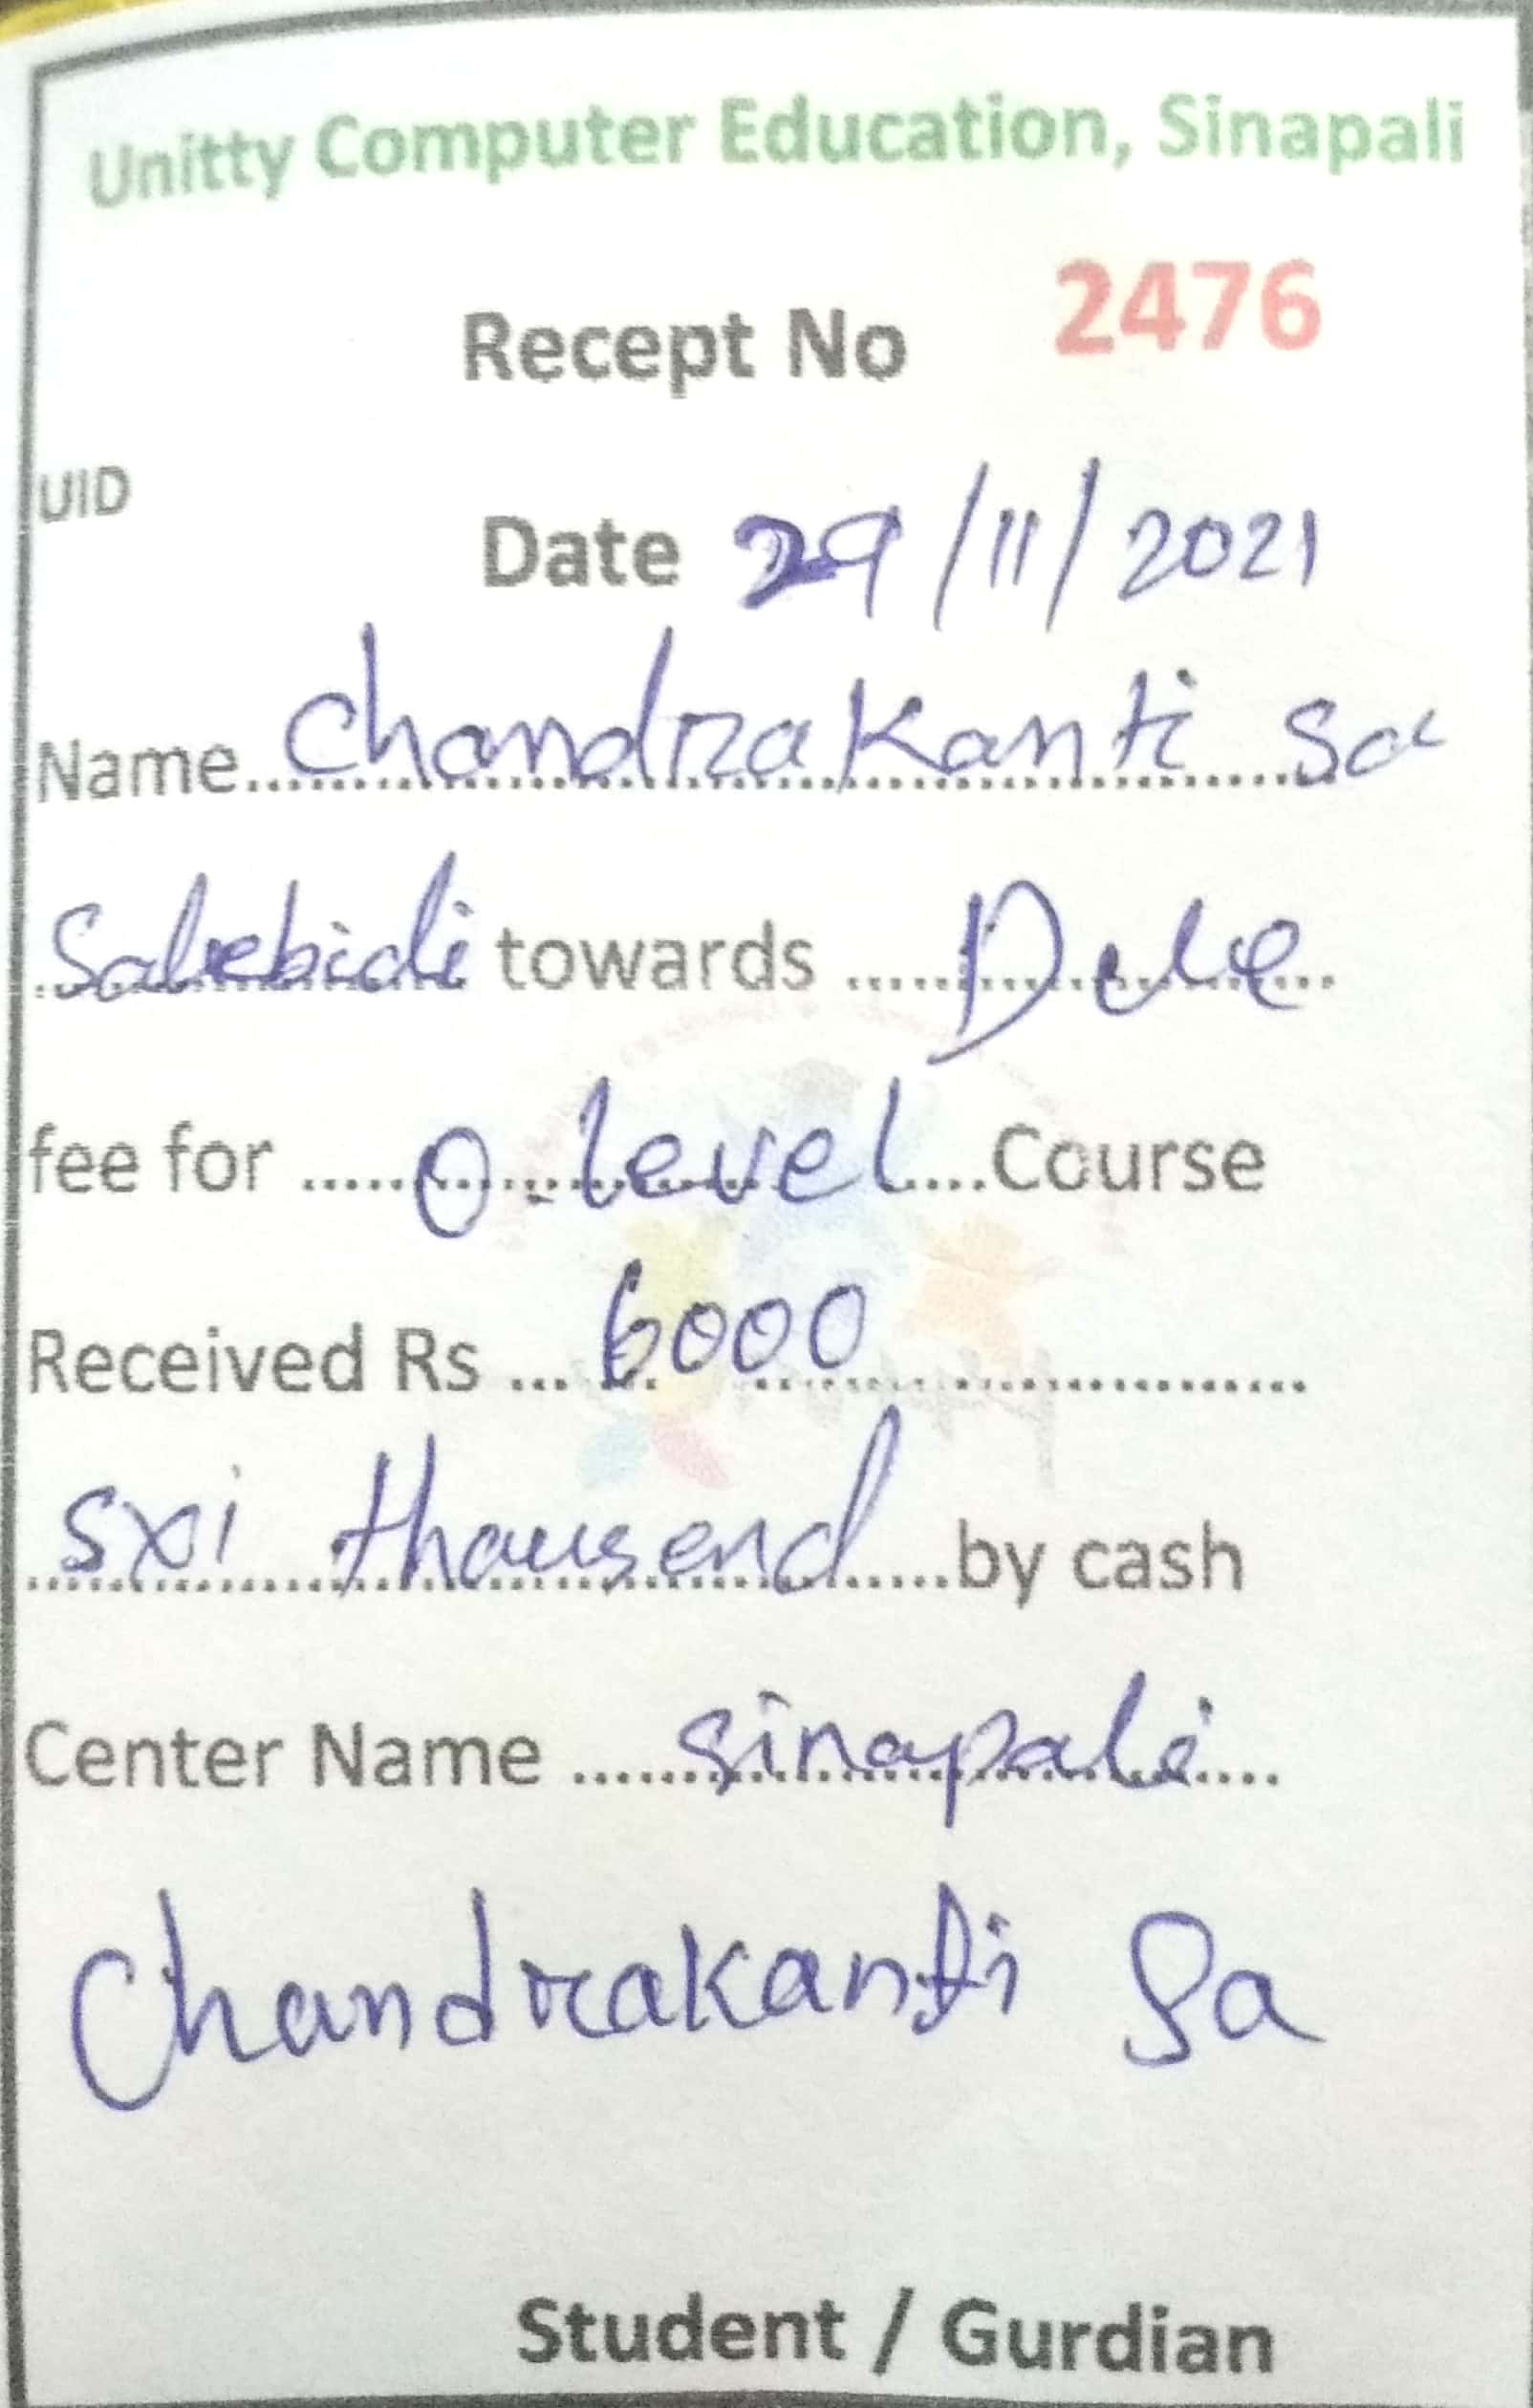 Unitty Computer Education, Sinapali
Recept No 2476
UID
Date 29/11/2021
Name Chandrakanti Sa
Salebidi towards
fee for O-level Course
Received Rs 6000
sxi thousend by cash
Center Name sinapali
Chandrakanti Sa
Student / Gurdian